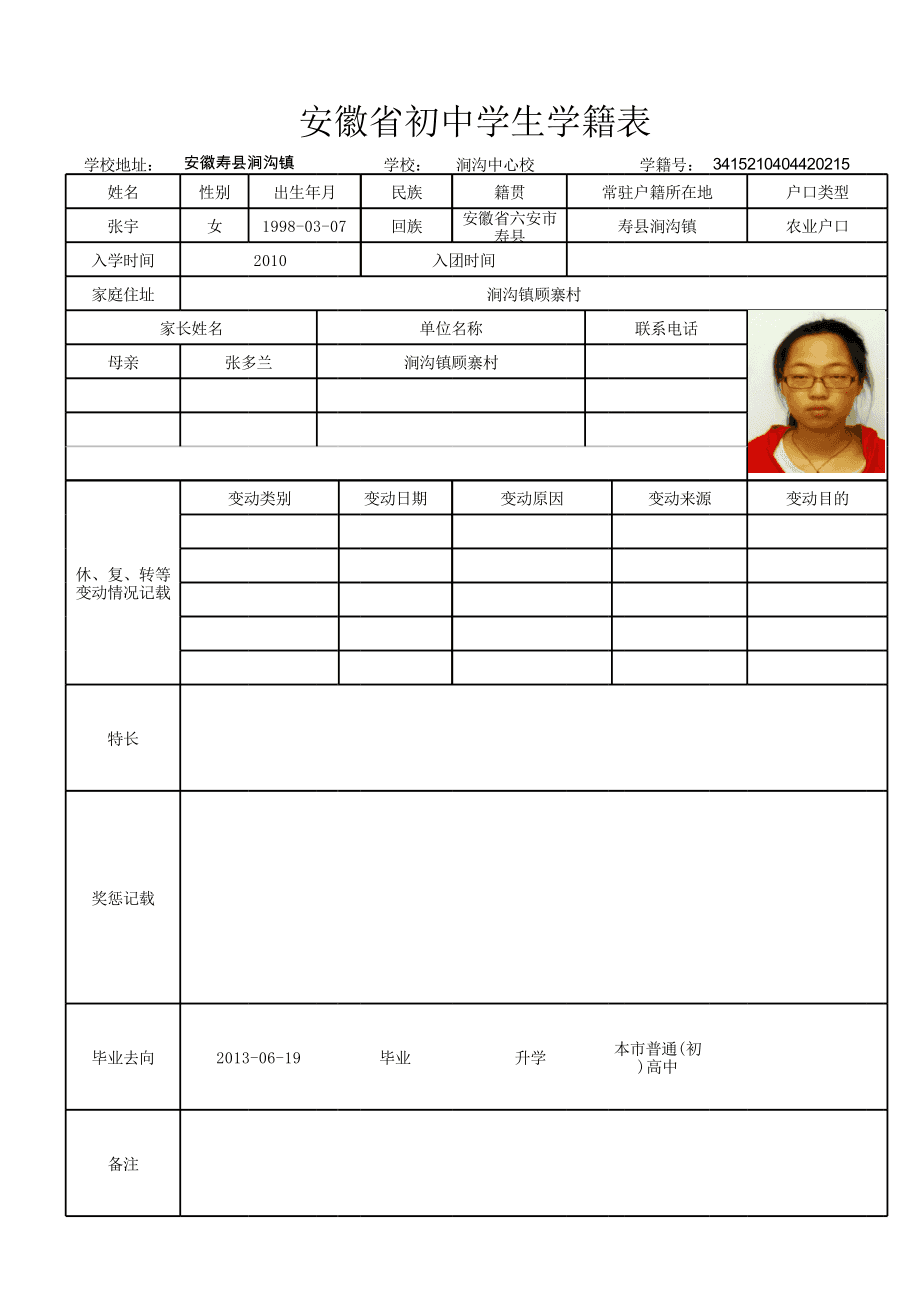 安徽省初中学生学籍表
学校地址： 安徽寿县涧沟镇 学校： 涧沟中心校 学籍号： 3415210404420215
姓名 性别 出生年月 民族 籍贯 常驻户籍所在地 户口类型
张宇 女 1998-03-07 回族 安徽省六安市 寿县涧沟镇 农业户口
寿县
入学时间 2010 入团时间
家庭住址 涧沟镇顾寨村
家长姓名 单位名称 联系电话
母亲 张多兰 涧沟镇顾寨村
变动类别 变动日期 变动原因 变动来源 变动目的
休、复、转等
变动情况记载
特长
奖惩记载
毕业去向 2013-06-19 毕业 升学 本市普通(初
)高中
备注